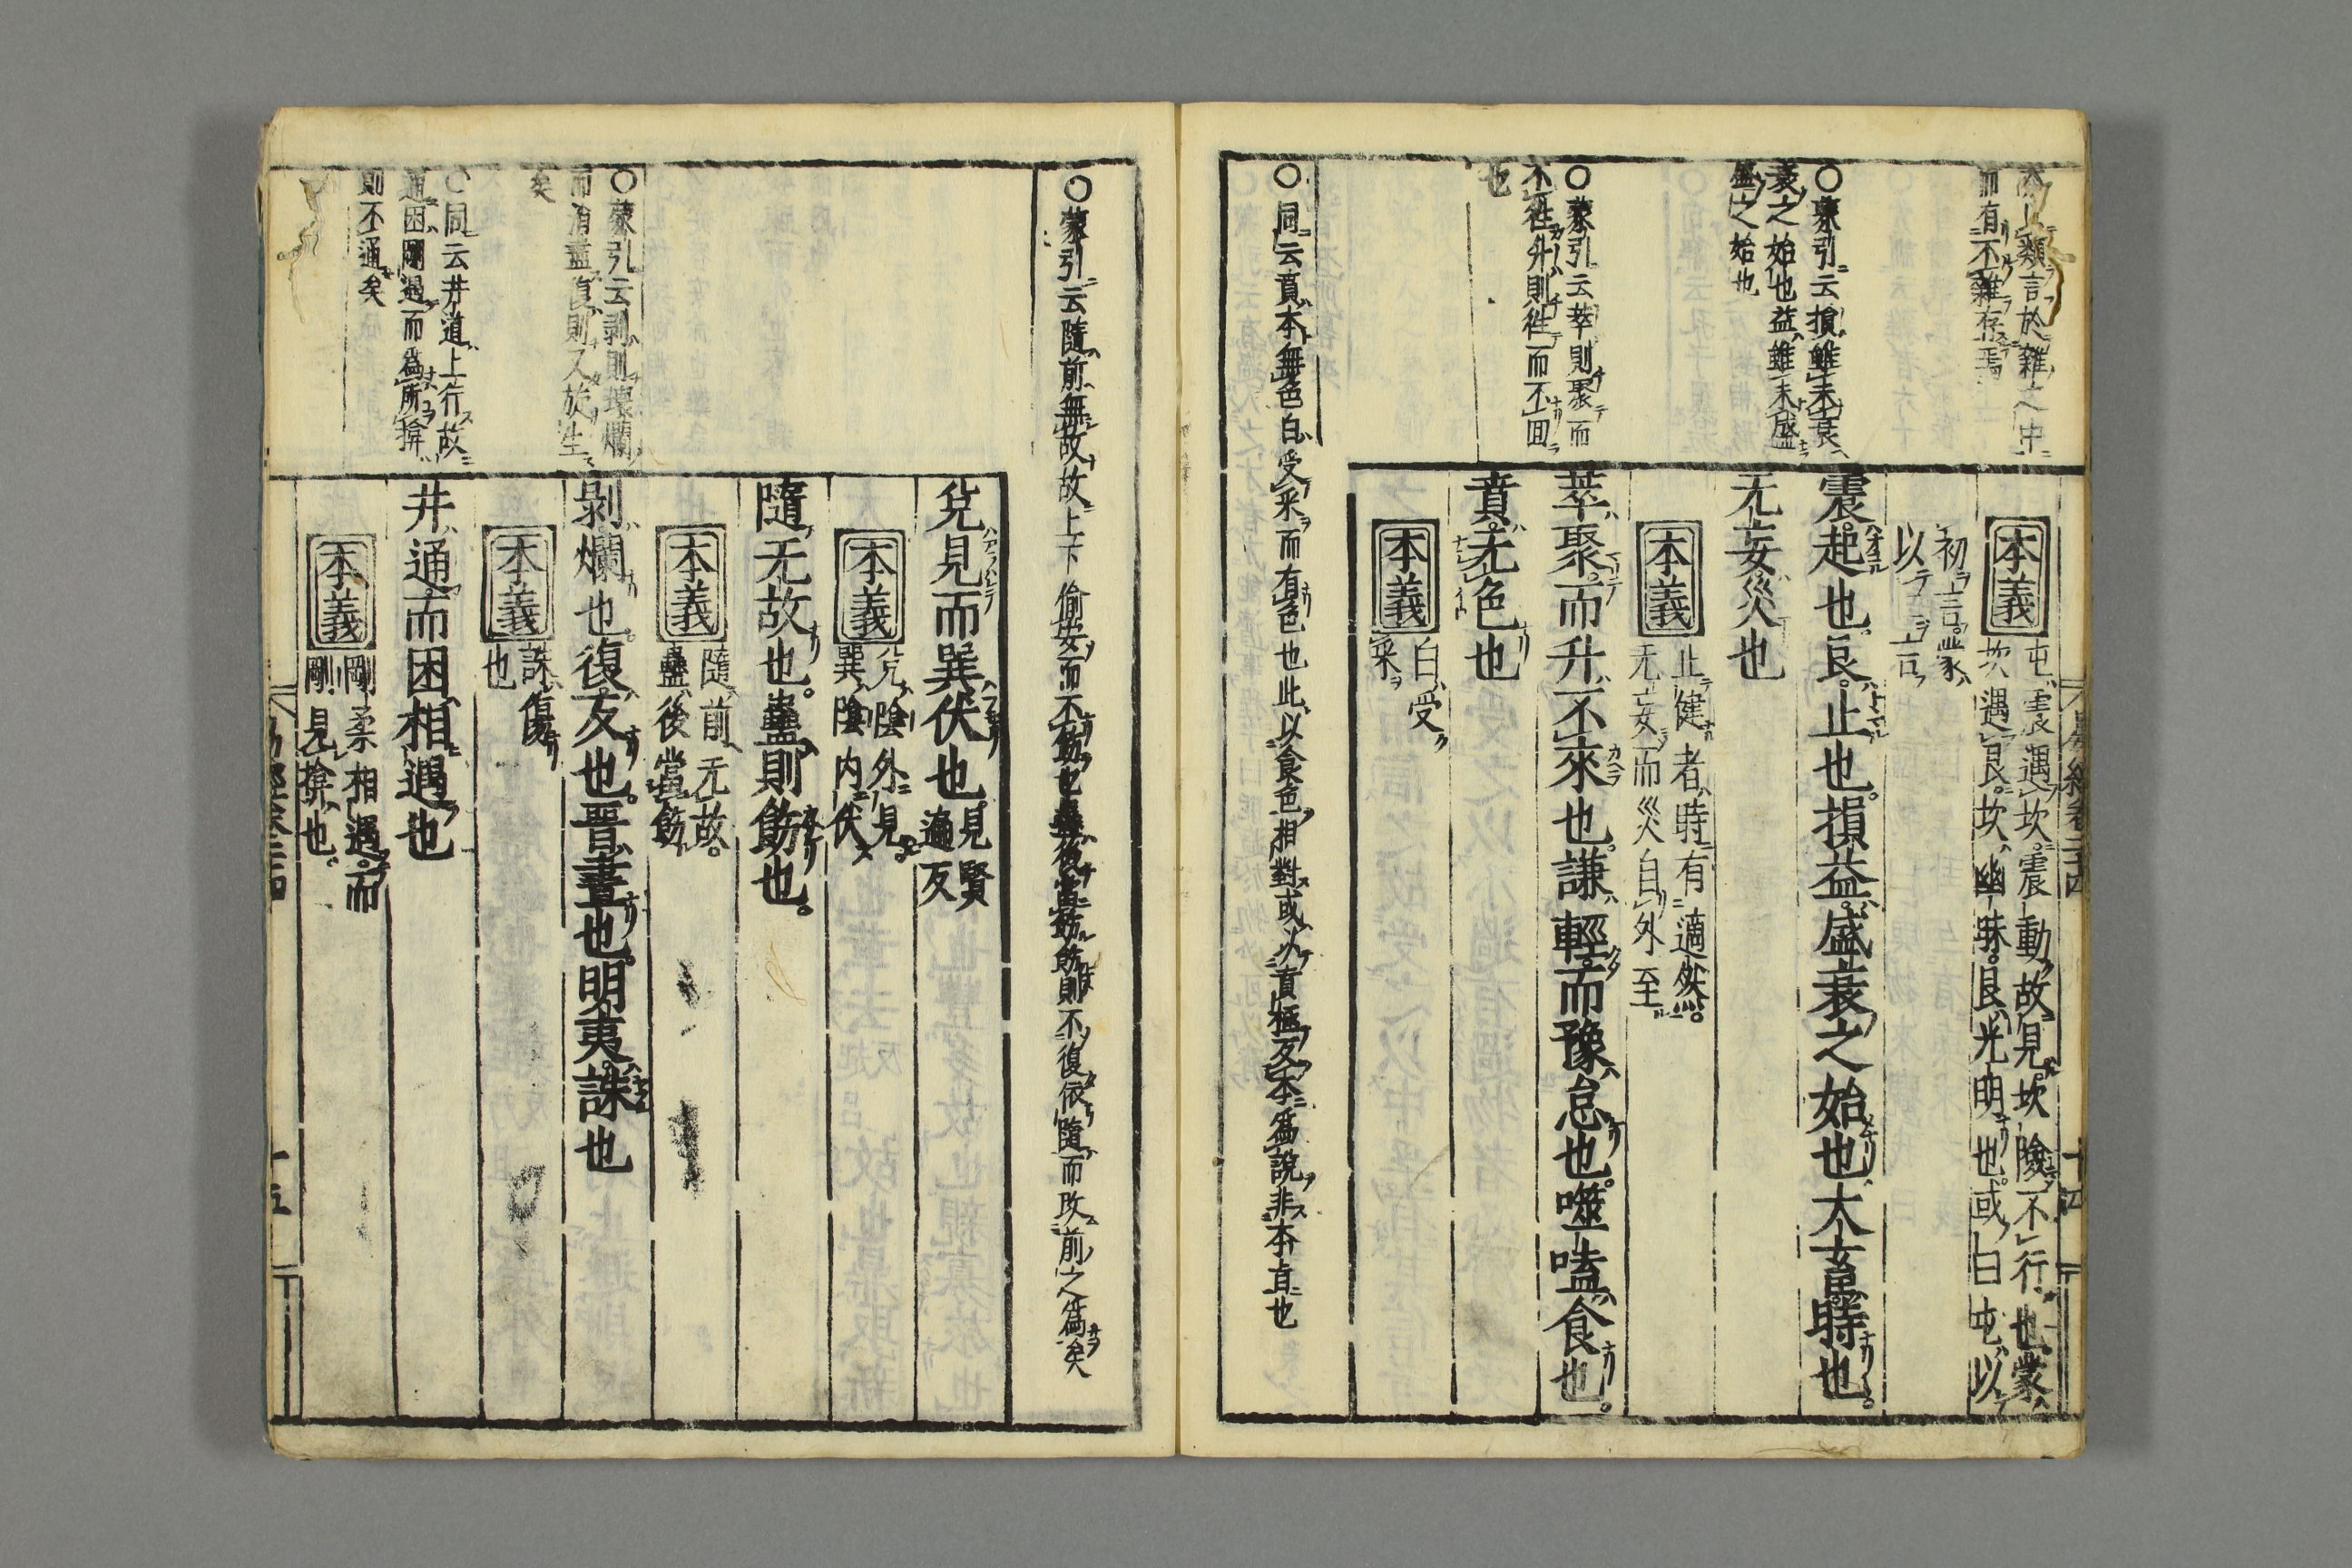 類言於雜之中
而有不雜存焉
○蒙引云損雖未衰
衰之始也益雖未盛
盛之始也
○蒙引云萃則聚而
不徃升則徃而不回
也
本義
屯震遇坎震動故見坎險不行也蒙
坎遇艮坎幽昧艮光明也或曰屯以
初言蒙
以二言
震起也艮止也損益盛衰之始也大畜時也
无妄災也
本義
止健者時有適然
无妄而災自外至
萃聚而升不來也謙輕而豫怠也噬嗑食也
賁无色也
本義
白受
采
○同云賁本無色白受采而有色也此以食色相對或以賁極反本爲說非本旨也
十四
○蒙引云隨前無故故上下偷安而不飭也蠱後當飭飭則不復依隨而改前之爲矣
○蒙引云剥則壞爛
而消盡復則又旋生
矣
○同云井道上行故
通困剛遇而爲所揜
則不通矣
兌見而巽伏也
見賢
遍反
本義
兌陰外見
巽陰内伏
隨无故也蠱則飭也
本義
隨前无故
蠱後當飭
剥爛也復反也晋晝也明夷誅也
本義
誅傷
也
井通而困相遇也
本義
剛柔相遇而
剛見揜也
十五